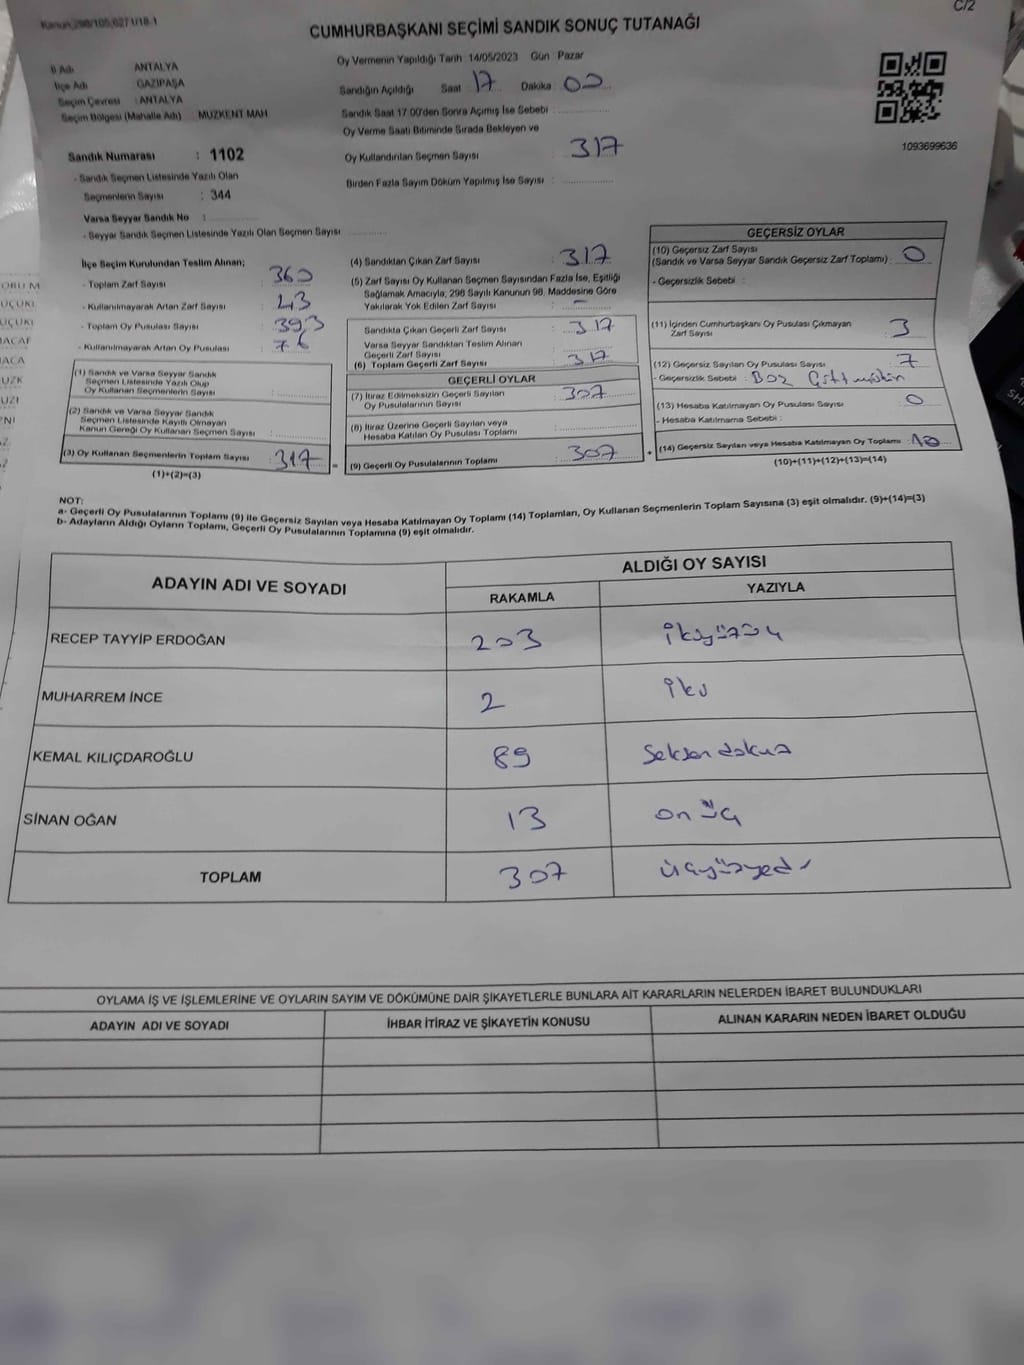 Kanun,298/105,6271/18-1
C/2
CUMHURBAŞKANI SEÇİMİ SANDIK SONUÇ TUTANAĞI
İl Adı ANTALYA
İlçe Adı GAZİPAŞA
Seçim Çevresi : ANTALYA
Seçim Bölgesi (Mahalle Adı) : MUZKENT MAH
Oy Vermenin Yapıldığı Tarih :14/05/2023 Gün : Pazar
Sandığın Açıldığı Saat : 17 Dakika : 00
Sandık Saat 17.00'den Sonra Açımış İse Sebebi :
Oy Verme Saati Bitiminde Sırada Bekleyen ve
Oy Kullandırılan Seçmen Sayısı : 317
Birden Fazla Sayım Döküm Yapılmış İse Sayısı :
1093699636
Sandık Numarası : 1102
- Sandık Seçmen Listesinde Yazılı Olan
Seçmenlerin Sayısı : 344
Varsa Seyyar Sandık No :
- Seyyar Sandık Seçmen Listesinde Yazılı Olan Seçmen Sayısı
İlçe Seçim Kurulundan Teslim Alınan;
- Toplam Zarf Sayısı : 360
- Kullanılmayarak Artan Zarf Sayısı : 43
- Toplam Oy Pusulası Sayısı : 393
- Kullanılmayarak Artan Oy Pusulası : 76
(1) Sandık ve Varsa Seyyar Sandık
Seçmen Listesinde Yazılı Olup
Oy Kullanan Seçmenlerin Sayısı :
(2) Sandık ve Varsa Seyyar Sandık
Seçmen Listesinde Kayıtlı Olmayan
Kanun Gereği Oy Kullanan Seçmen Sayısı :
(3) Oy Kullanan Seçmenlerin Toplam Sayısı : 317
(1)+(2)=(3)
(4) Sandıktan Çıkan Zarf Sayısı : 317
(5) Zarf Sayısı Oy Kullanan Seçmen Sayısından Fazla İse, Eşitliği
Sağlamak Amacıyla; 298 Sayılı Kanunun 98. Maddesine Göre
Yakılarak Yok Edilen Zarf Sayısı : -
Sandıkta Çıkan Geçerli Zarf Sayısı : 317
Varsa Seyyar Sandıktan Teslim Alınan
Geçerli Zarf Sayısı
(6) Toplam Geçerli Zarf Sayısı : 317
GEÇERLİ OYLAR
(7) İtiraz Edilmeksizin Geçerli Sayılan
Oy Pusulalarının Sayısı : 307
(8) İtiraz Üzerine Geçerli Sayılan veya
Hesaba Katılan Oy Pusulası Toplamı :
(9) Geçerli Oy Pusulalarının Toplamı : 307
GEÇERSİZ OYLAR
(10) Geçersiz Zarf Sayısı
(Sandık ve Varsa Seyyar Sandık Geçersiz Zarf Toplamı) : 0
- Geçersizlik Sebebi :
(11) İçinden Cumhurbaşkanı Oy Pusulası Çıkmayan
Zarf Sayısı : 3
(12) Geçersiz Sayılan Oy Pusulası Sayısı : 7
- Geçersizlik Sebebi : Boş
(13) Hesaba Katılmayan Oy Pusulası Sayısı : 0
- Hesaba Katılmama Sebebi :
(14) Geçersiz Sayılan veya Hesaba Katılmayan Oy Toplamı : 10
(10)+(11)+(12)+(13)=(14)
NOT:
a- Geçerli Oy Pusulalarının Toplamı (9) ile Geçersiz Sayılan veya Hesaba Katılmayan Oy Toplamı (14) Toplamları, Oy Kullanan Seçmenlerin Toplam Sayısına (3) eşit olmalıdır. (9)+(14)=(3)
b- Adayların Aldığı Oyların Toplamı, Geçerli Oy Pusulalarının Toplamına (9) eşit olmalıdır.
ADAYIN ADI VE SOYADI ALDIĞI OY SAYISI
RAKAMLA YAZIYLA
RECEP TAYYİP ERDOĞAN 203 ikiyüzüç
MUHARREM İNCE 2 iki
KEMAL KILIÇDAROĞLU 89 Seksendokuz
SİNAN OĞAN 13 onüç
TOPLAM 307 üçyüzyedi
OYLAMA İŞ VE İŞLEMLERİNE VE OYLARIN SAYIM VE DÖKÜMÜNE DAİR ŞİKAYETLERLE BUNLARA AİT KARARLARIN NELERDEN İBARET BULUNDUKLARI
ADAYIN ADI VE SOYADI İHBAR İTİRAZ VE ŞİKAYETİN KONUSU ALINAN KARARIN NEDEN İBARET OLDUĞU